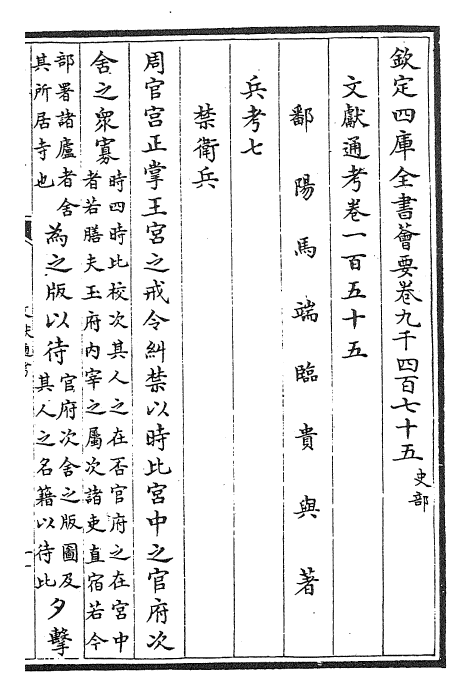 欽定四庫全書薈要卷九千四百七十五 史部
文獻通考卷一百五十五
鄱陽馬端臨貴與著
兵考七
禁衛兵
周官宮正掌王宮之戒令糾禁以時比宮中之官府次
舍之衆寡時四時比校次其人之在否官府之在宮中者若膳夫玉府内宰之屬次諸吏直宿若今
部署諸廬者舍其所居寺也為之版以待官府次舍之版圖及其人之名籍以待比夕擊